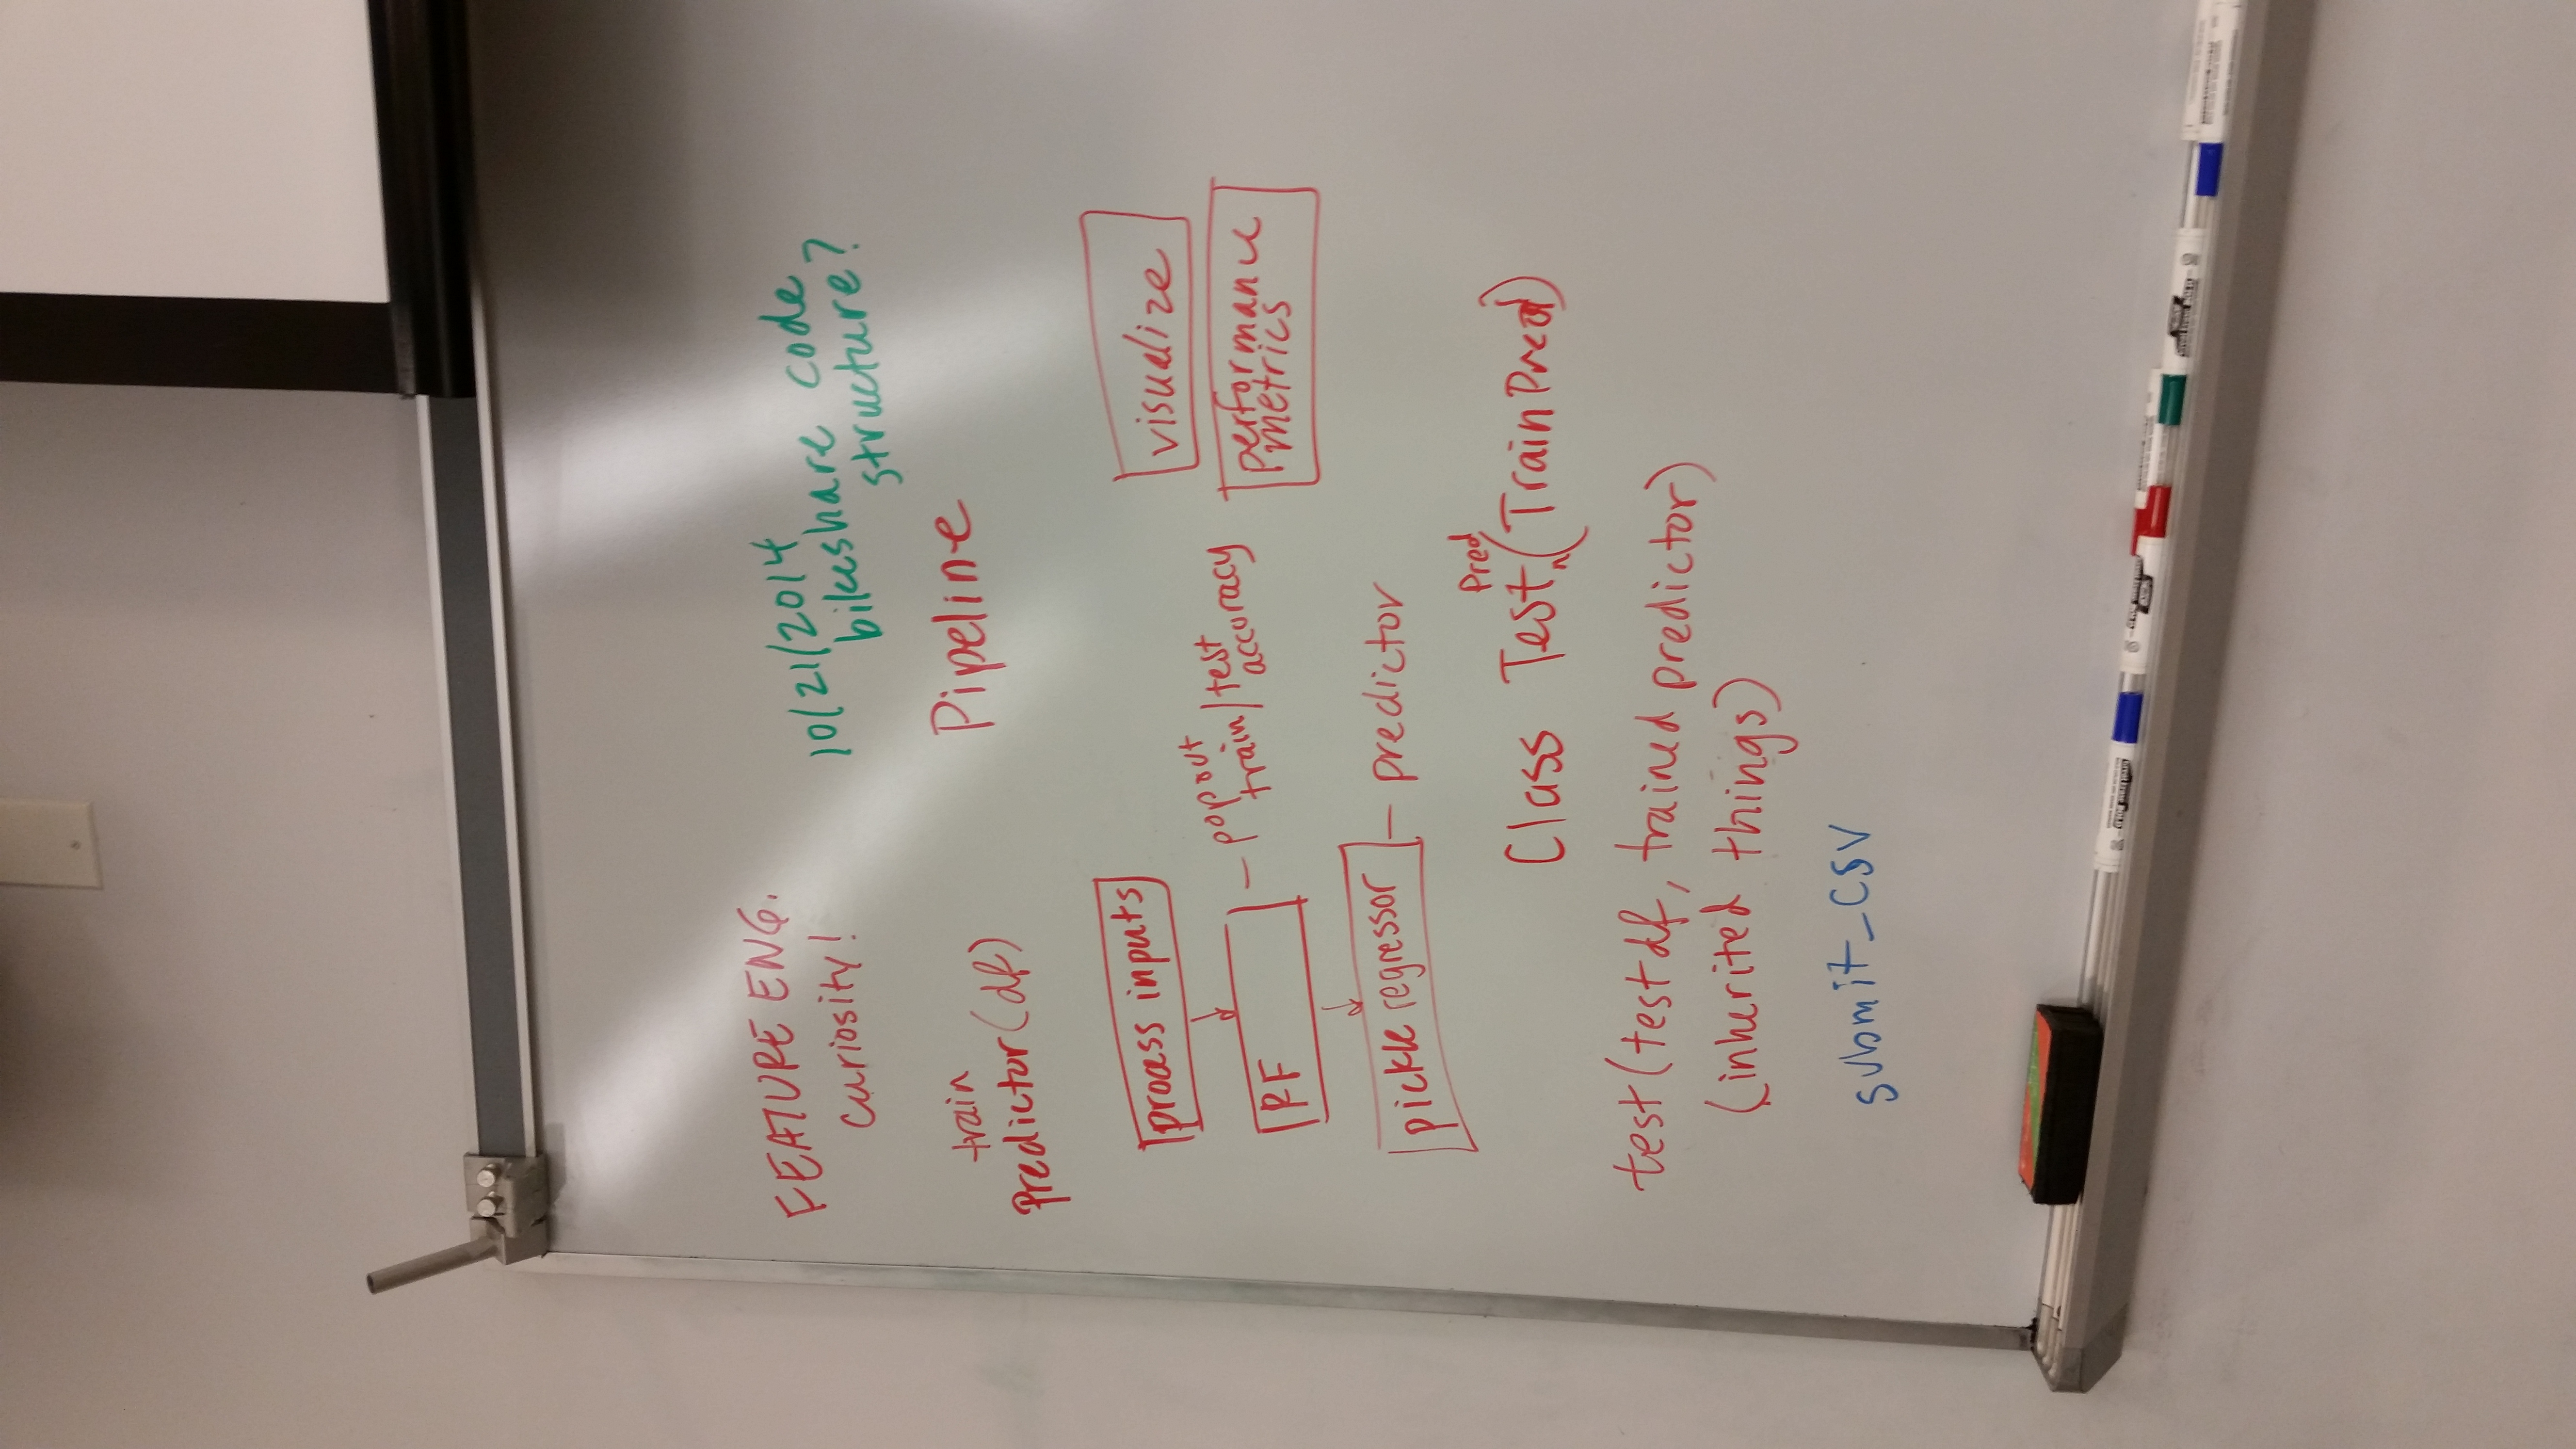 FEATURE ENG.
curiosity!
10/21/2014
bikeshare code
structure?
Pipeline
train
Predictor (df)
process inputs
RF
popout
train/test
accuracy
pickle regressor
predictor
visualize
performance
metrics
Pred
Class Test (TrainPred)
test (test df, trained predictor)
(inherited things)
submit_csv